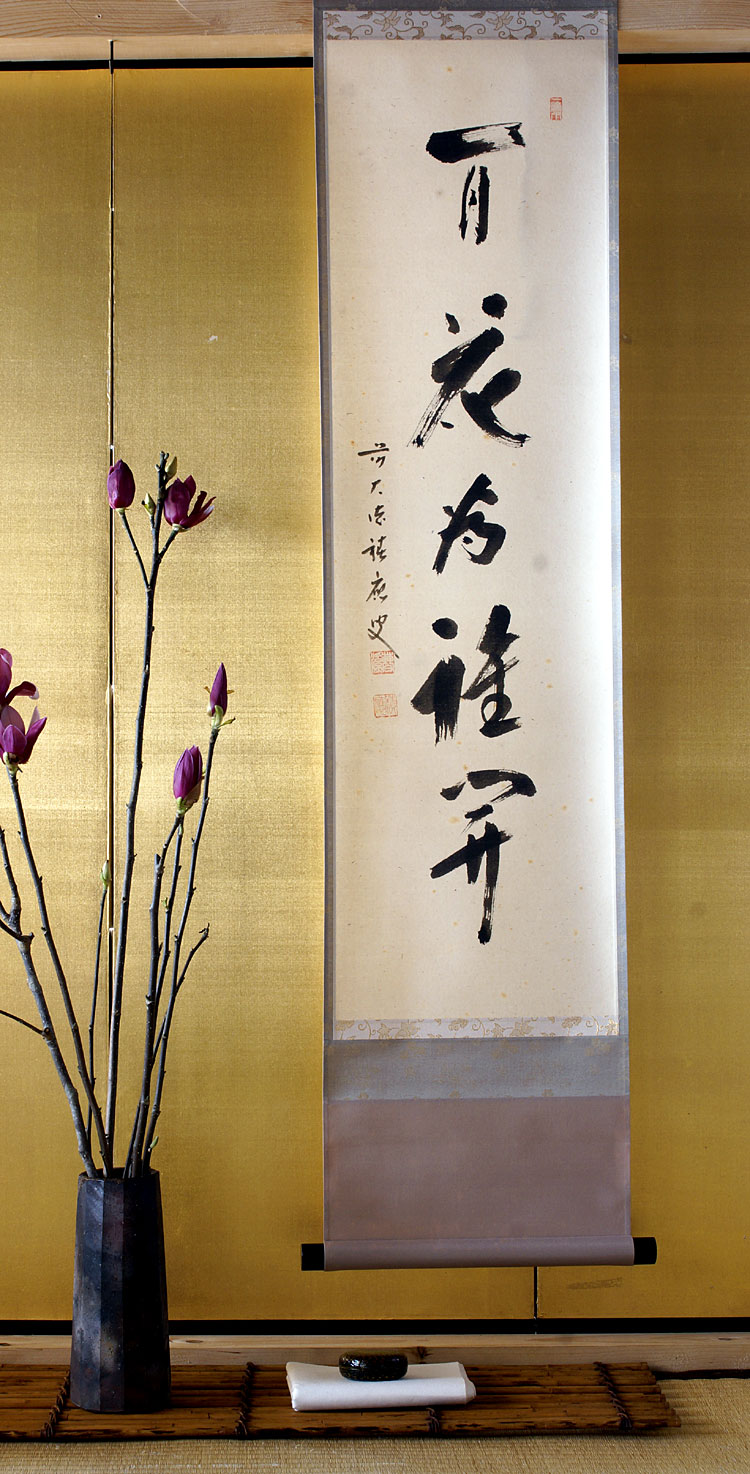 百花為誰開
前大徳積應叟